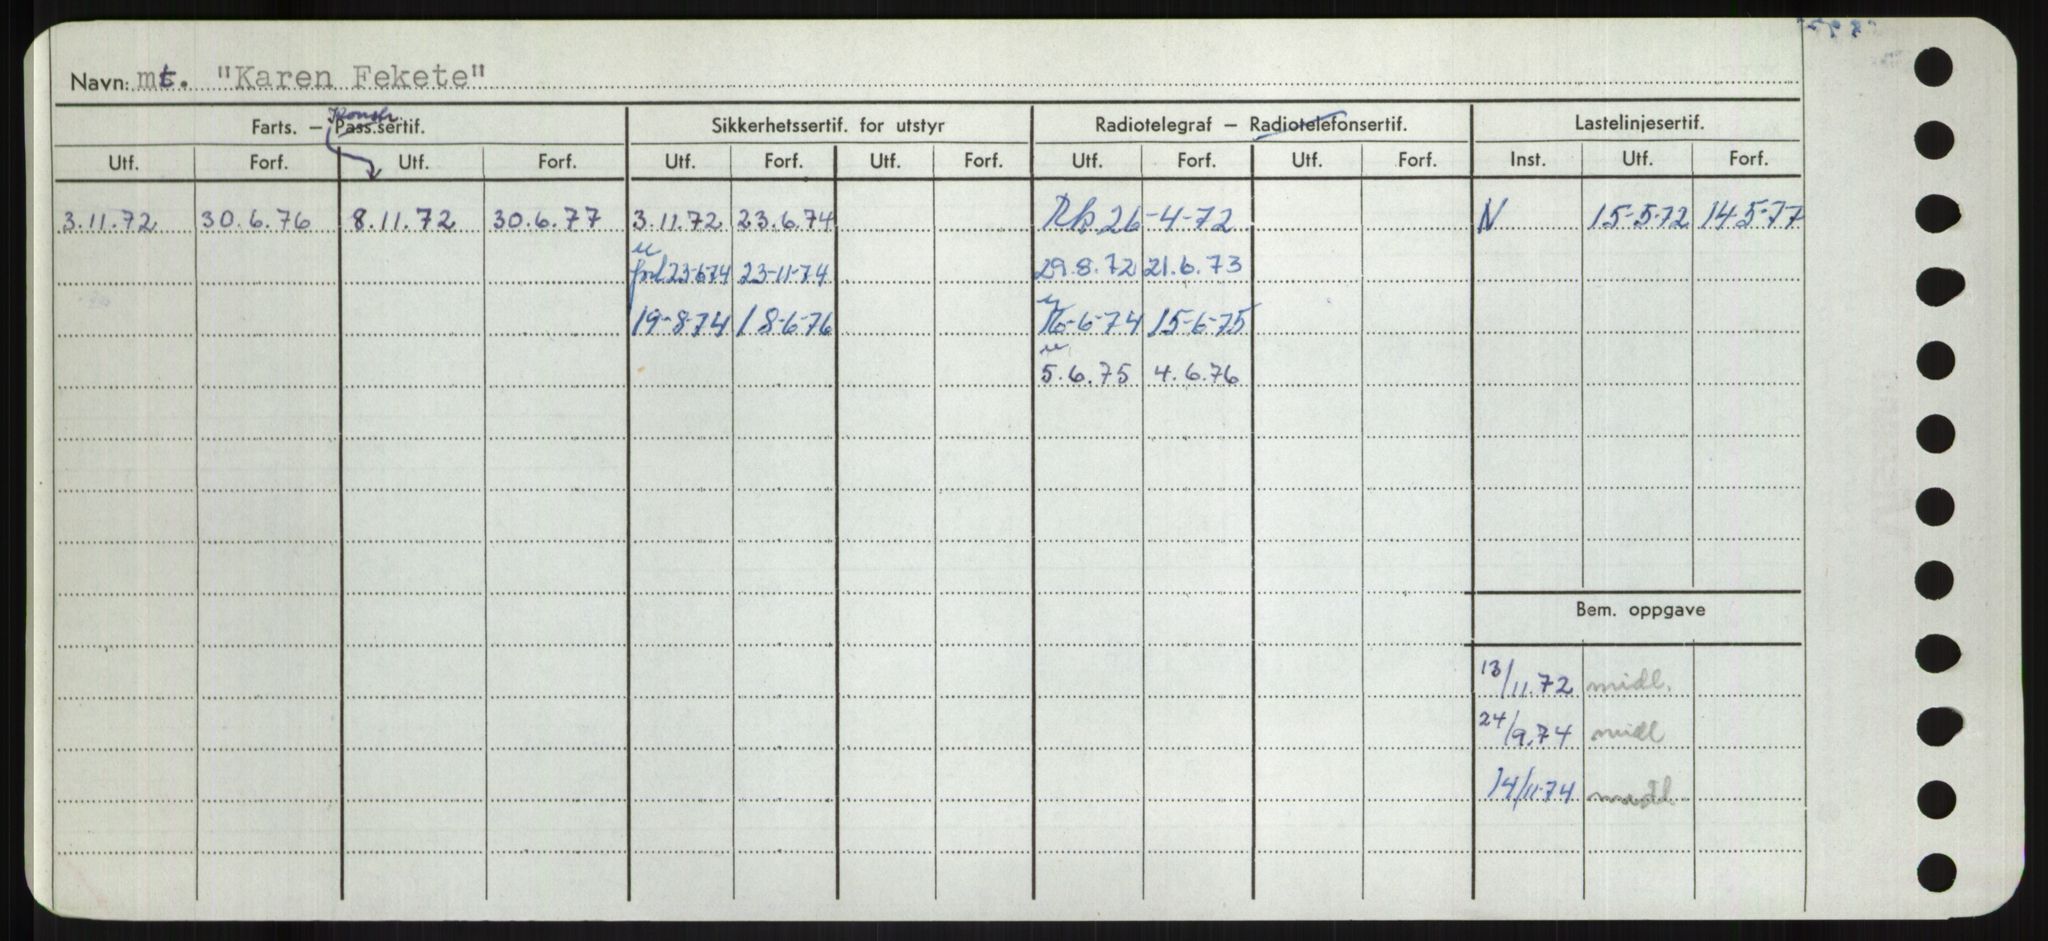 Navn: mt. "Karen Fekete"
Konstr.
Farts. — Pass.sertif. Sikkerhetssertif. for utstyr Radiotelegraf — Radiotelefonsertif. Lastelinjesertif.
Utf. Forf. Utf. Forf. Utf. Forf. Utf. Forf. Utf. Forf. Utf. Forf. Inst. Utf. Forf.
3.11.72 30.6.76 8.11.72 30.6.77 3.11.72 23.6.74 Rk. 26-4-72 N 15-5-72 14-5-77
forl 23-6-74 23-11-74 29.8.72 21.6.73
19-8-74 18-6-76 16-6-74 15-6-75
5.6.75 4.6.76
Bem. oppgave
13/11.72 midl.
24/9.74 midl
14/11-74 midl.